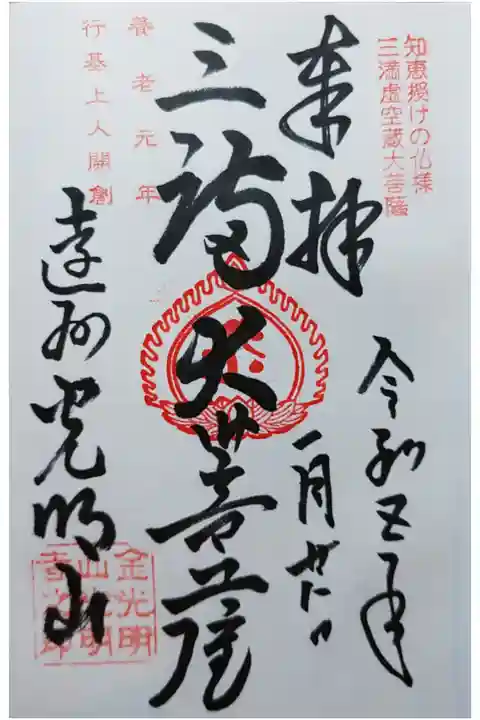 知恵授けの仏様
三満虚空蔵大菩薩
奉拝
令和五年
一月廿八日
三満大菩薩
養老元年
行基上人開創
遠州光明山
金光明
山光明
寺之印